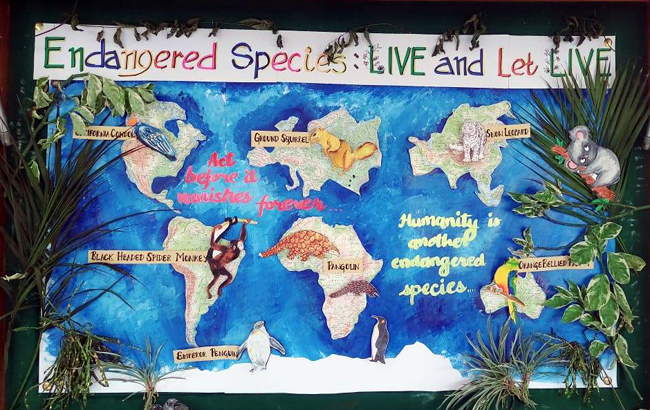 Endangered Species: LIVE and Let LIVE
CALIFORNIA CONDOR
GROUND SQUIRREL
SNOW LEOPARD
Act
before it
vanishes forever
Humanity is
another
endangered
species...
BLACK HEADED SPIDER MONKEY
PANGOLIN
ORANGE BELLIED
EMPEROR PENGUIN